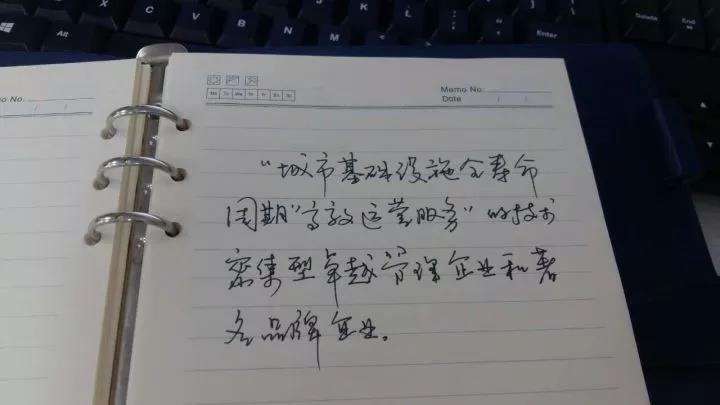 Memo No.
Date / /
Mo Tu We Th Fr Sa Su
"城市基础设施全寿命
周期"高效运营服务"的技术
密集型卓越管理企业和著
名品牌企业。
o No.
/ /
Alt
Z X C V B N M
Enter
Delete
End